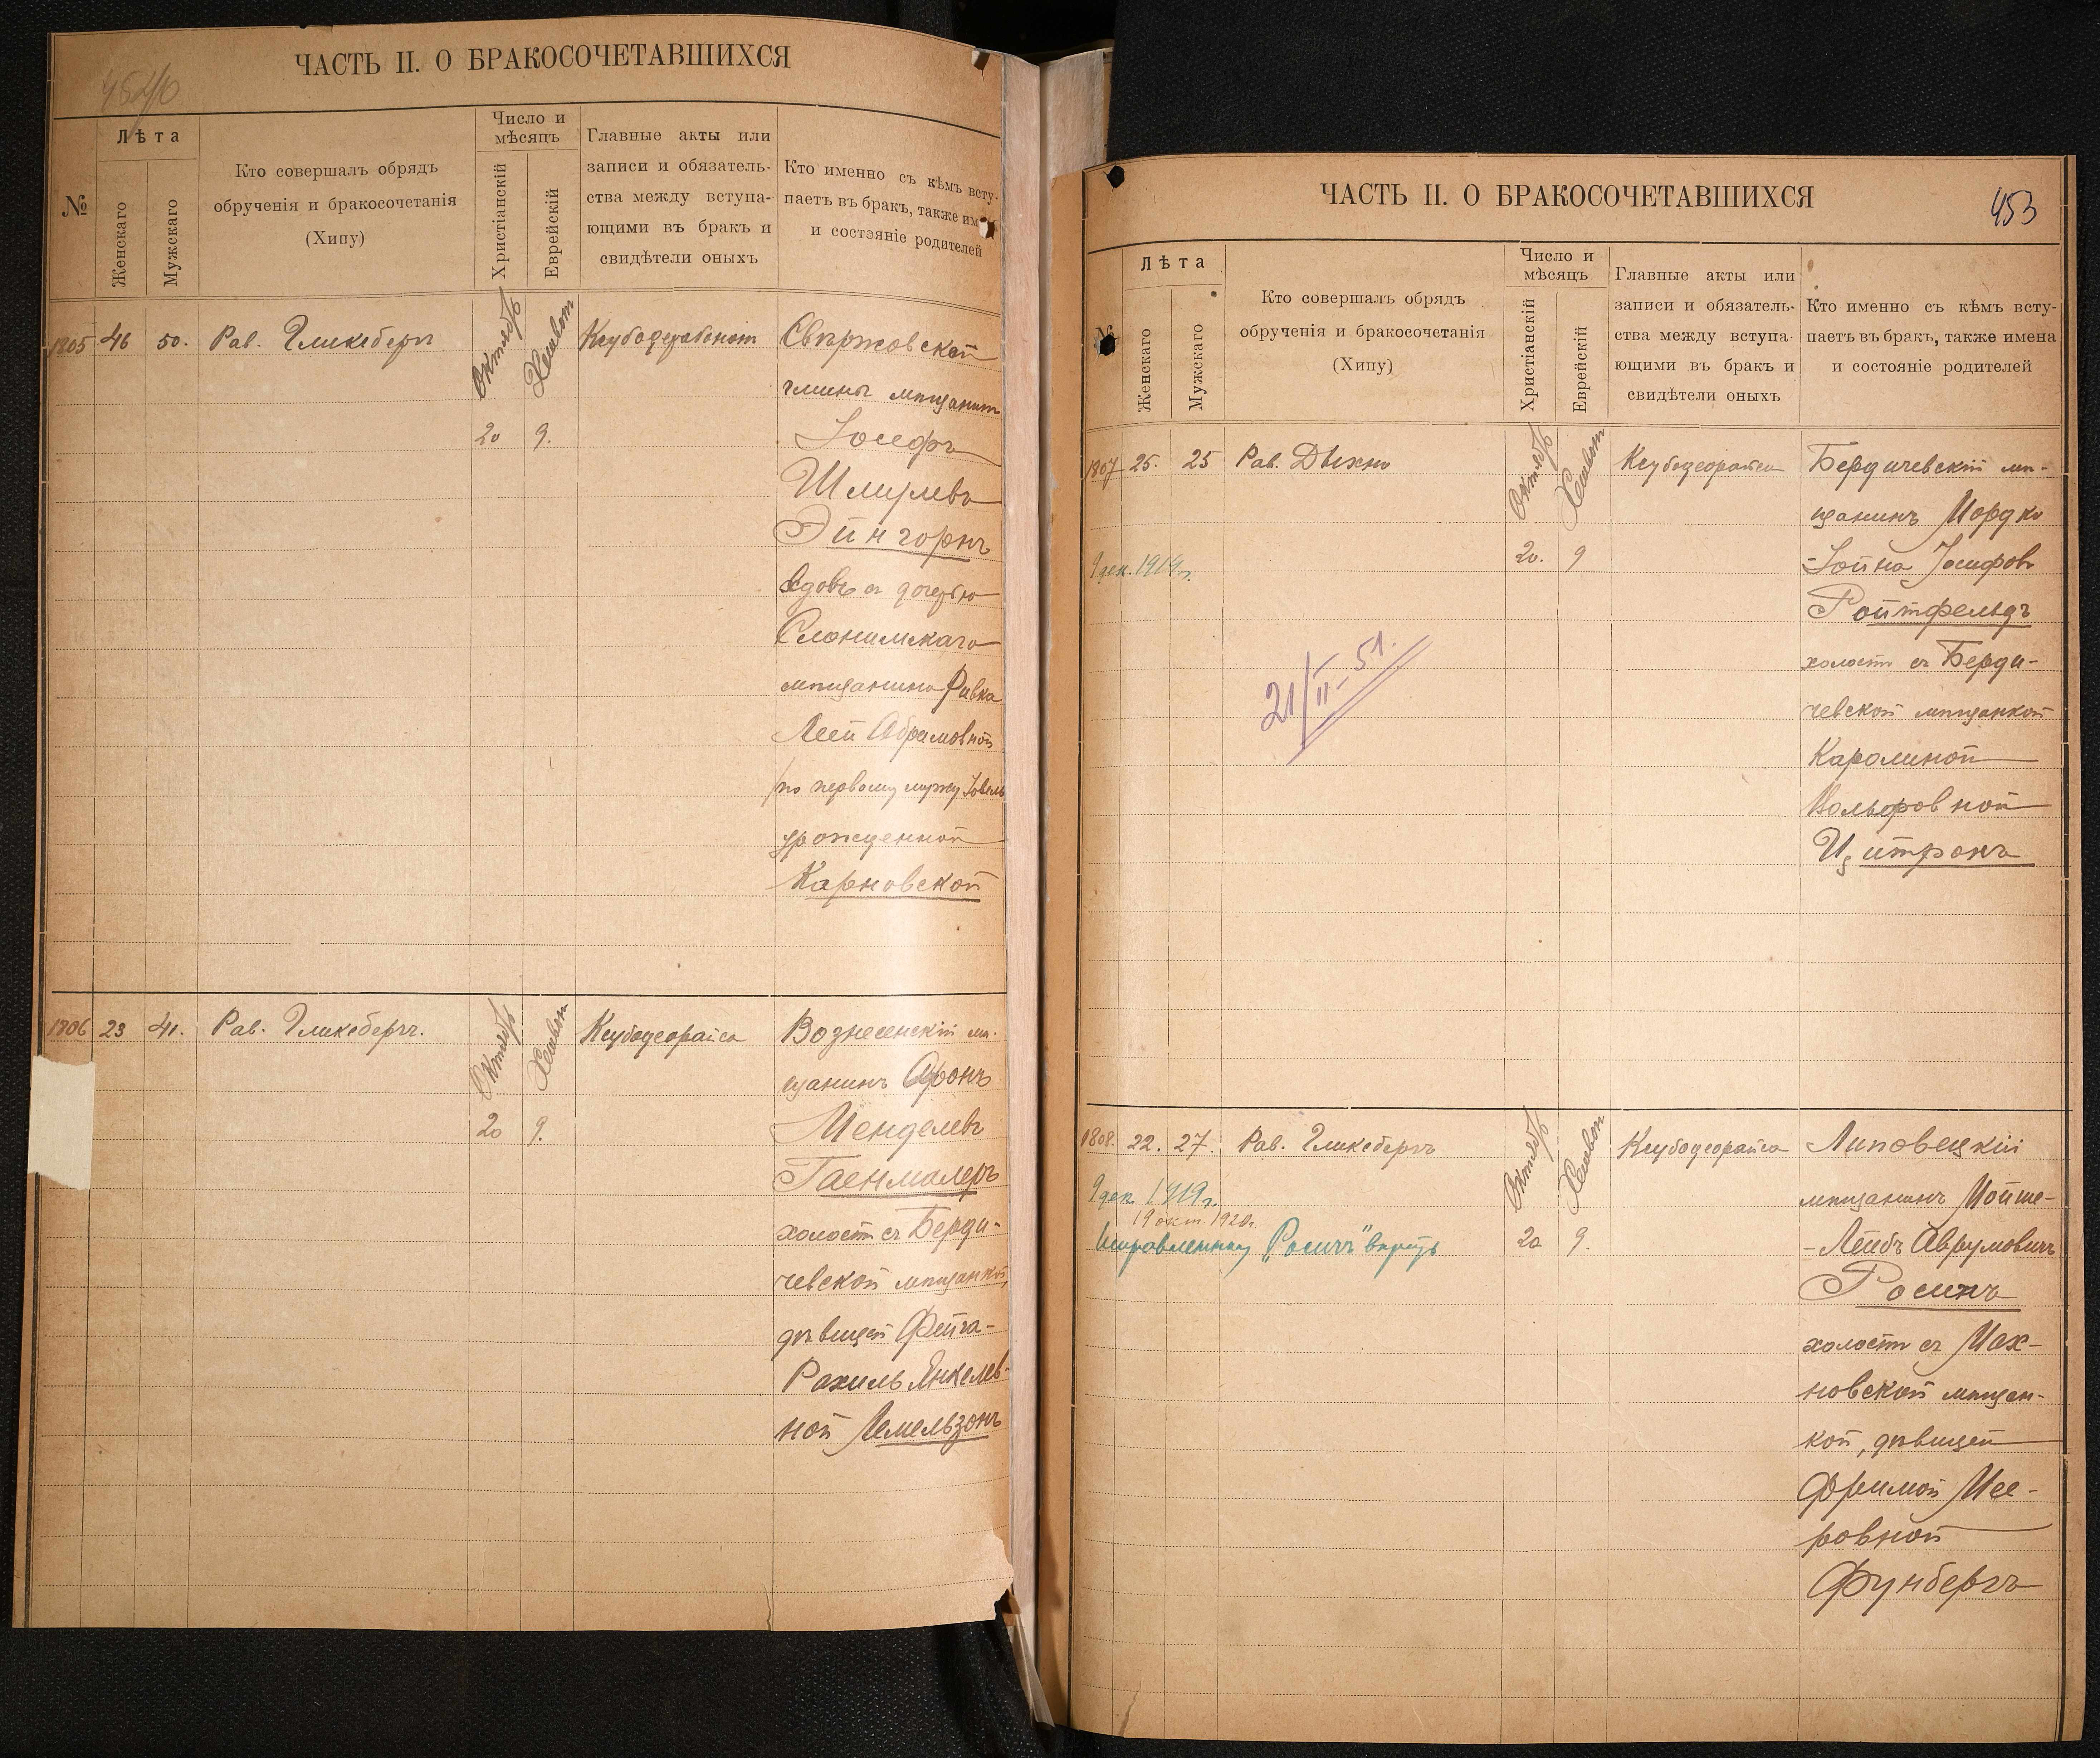 ЧАСТЬ II. О БРАКОСОЧЕТАВШИХСЯ
№
Лѣта
Женскаго
Мужскаго
Кто совершалъ обрядъ
обрученія и бракосочетанія
(Хипу)
Число и
мѣсяцъ
Христіанскій
Еврейскій
Главные акты или
записи и обязатель-
ства между вступа-
ющими въ бракъ и
свидѣтели оныхъ
Кто именно съ кѣмъ всту-
паетъ въ бракъ, также им
и состояніе родителей
1805 46 50. Рав. Гликсбергъ
Октябрь
Хешвон
20 9.
Свержовской
гмины мѣщанинъ
Іосифъ
Шмулевъ
Эйнгорнъ
вдовъ съ дочерью
Слонимскаго
мѣщанина Ривка
Леей Абрамовной
/по первому мужу
урожденной
Карновской
1806 23 41. Рав. Гликсбергъ.
Октябрь
Хешвон
20 9.
Ксубодеорайса
Вознесенскій мѣ-
щанинъ Аронъ
Менделевъ
Гаенмалеръ
холостъ съ Берди-
чевской мѣщанкой,
дѣвицей Фейга-
Рахиль Янкелев-
ной Гемельзонъ
ЧАСТЬ II. О БРАКОСОЧЕТАВШИХСЯ
453
№
Лѣта
Женскаго
Мужскаго
Кто совершалъ обрядъ
обрученія и бракосочетанія
(Хипу)
Число и
мѣсяцъ
Христіанскій
Еврейскій
Главные акты или
записи и обязатель-
ства между вступа-
ющими въ бракъ и
свидѣтели оныхъ
Кто именно съ кѣмъ всту-
паетъ въ бракъ, также имена
и состояніе родителей
1807 25. 25 Рав. Дыхно
Октябрь
Хешвон
20. 9
9 дек. 1919 г.
21/II-51.
Ксубодеорайса
Бердичевскій мѣ-
щанинъ Мордко
-Іойна Іосифовъ
Ройтфельдъ
холостъ съ Берди-
чевской мѣщанкой
Каролиной
Вольфовной
Цитронъ
1808. 22. 27. Рав. Гликсбергъ
Октябрь
Хешвон
20 9.
9 дек. 1919 г.
19 окт 1920 г.
Исправленному „Росинъ" вѣрить
Ксубодеорайса
Липовецкій
мѣщанинъ Мойше-
-Лейбъ Аврумовичъ
Росинъ
холостъ съ Мах-
новской мѣщан-
кой, дѣвицей
Фримой Мее-
ровной
Фунбергъ